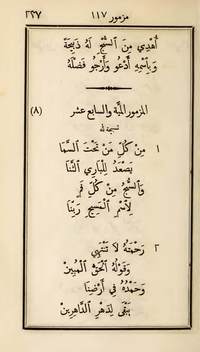 مزمور ١١٧
٢٢٧
أُهْدِي مِنَ السُّبْحِ لَهُ ذَبِيحَةْ
وَبِاسْمِهِ أَدْعُو وَأَرْجُو فَضْلَهُ
المزمور المئة والسابع عشر
(٨)
١ مِنْ كُلِّ مَنْ تَحْتَ السَّمَا
يَصْعَدُ لِلْبَارِي الثَّنَا
وَالسُّبْحُ مِنْ كُلِّ فَمٍ
لِاسْمِ الْمَسِيحِ رَبِّنَا
٢ رَحْمَتُهُ لَا تَنْتَهِي
وَقَوْلُهُ الْحَقُّ الْمُبِينْ
وَحَمْدُهُ فِي أَرْضِنَا
يَبْقَى لِدَهْرِ الدَّاهِرِينْ